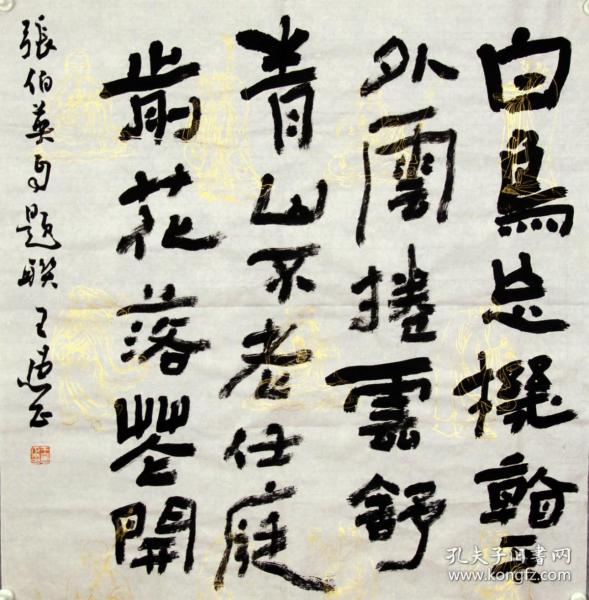 白鳥忘機看天
外雲捲雲舒
青山不老任庭
前花落花開
張伯英自題聯 王
孔夫子旧书网
www.kongfz.com